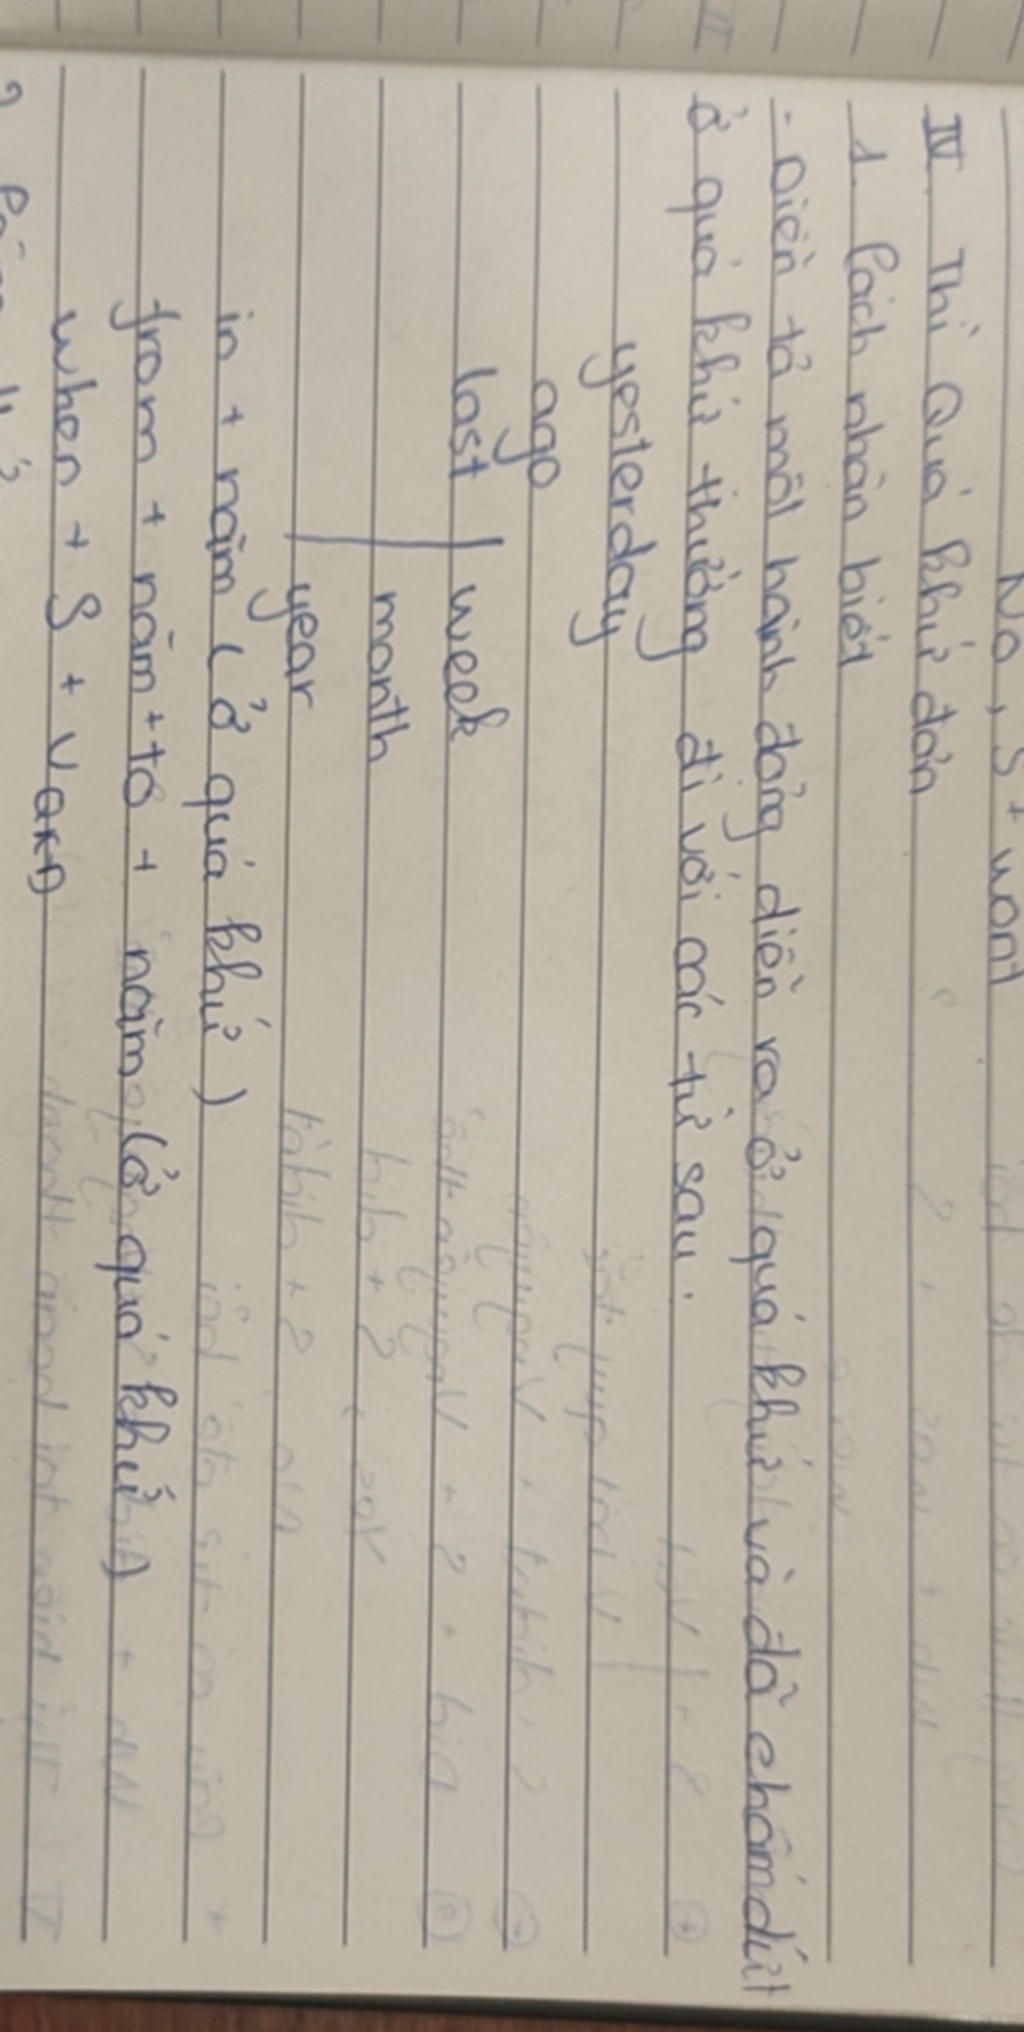 No, S + won't
IV. Thì Quá khứ đơn
1. Cách nhận biết
- Diễn tả một hành động diễn ra ở quá khứ và đã chấm dứt
ở quá khứ thường đi với các từ sau.
yesterday
ago
last | week
month
year
in + năm (ở quá khứ)
from + năm + to + năm (ở quá khứ)
when + S + V